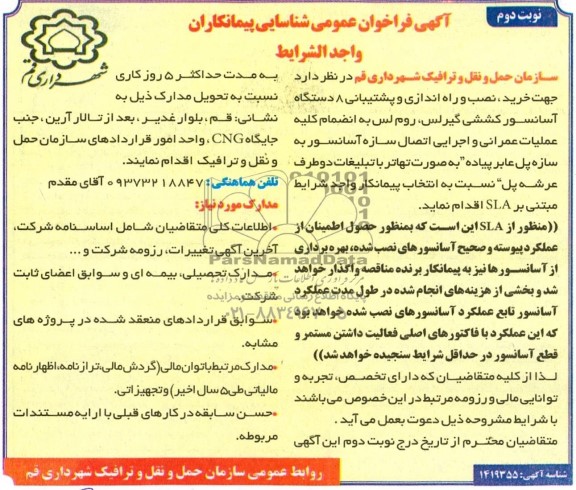 نوبت دوم
آگهی فراخوان عمومی شناسایی پیمانکاران
واجد الشرایط
شهرداری قم
سازمان حمل و نقل و ترافیک شهرداری قم در نظر دارد
جهت خرید، نصب و راه اندازی و پشتیبانی ۸ دستگاه
آسانسور کششی گیرلس، روم لس به انضمام کلیه
عملیات عمرانی و اجرایی اتصال سازه آسانسور به
سازه پل عابر پیاده "به صورت تهاتر با تبلیغات دوطرف
عرشه پل" نسبت به انتخاب پیمانکار واجد شرایط
مبتنی بر SLA اقدام نماید.
((منظور از SLA این است که بمنظور حصول اطمینان از
عملکرد پیوسته و صحیح آسانسورهای نصب شده، بهره برداری
از آسانسورها نیز به پیمانکار برنده مناقصه واگذار خواهد
شد و بخشی از هزینه‌های انجام شده در طول مدت عملکرد
آسانسور تابع عملکرد آسانسورهای نصب شده خواهد بود
که این عملکرد با فاکتورهای اصلی فعالیت داشتن مستمر و
قطع آسانسور در حداقل شرایط سنجیده خواهد شد))
لذا از کلیه متقاضیان که دارای تخصص، تجربه و
توانایی مالی و رزومه مرتبط در این خصوص می باشند
با شرایط مشروحه ذیل دعوت بعمل می آید.
متقاضیان محترم از تاریخ درج نوبت دوم این آگهی
به مدت حداکثر ۵ روز کاری
نسبت به تحویل مدارک ذیل به
نشانی: قم، بلوار غدیر، بعد از تالار آرین، جنب
جایگاه CNG، واحد امور قراردادهای سازمان حمل
و نقل و ترافیک اقدام نمایند.
تلفن هماهنگی: ۰۹۳۷۳۲۱۸۸۴۷ آقای مقدم
مدارک مورد نیاز:
•اطلاعات کلی متقاضیان شامل اساسنامه شرکت،
آخرین آگهی تغییرات، رزومه شرکت و ...
•مدارک تحصیلی، بیمه ای و سوابق اعضای ثابت
شرکت.
•سوابق قراردادهای منعقد شده در پروژه های
مشابه.
•مدارک مرتبط با توان مالی (گردش مالی، ترازنامه، اظهارنامه
مالیاتی طی ۵ سال اخیر) و تجهیزاتی.
•حسن سابقه در کارهای قبلی با ارایه مستندات
مربوطه.
ParsNamadData
۰۲۱-۸۸۳۴۹۶۷۰-۵
شناسه آگهی: ۱۴۱۹۳۵۵
روابط عمومی سازمان حمل و نقل و ترافیک شهرداری قم